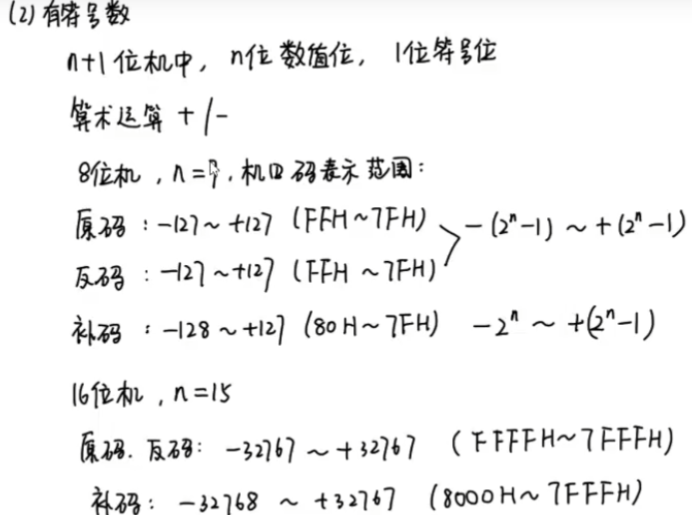 (2) 有符号数
n+1位机中, n位数值位, 1位符号位
算术运算 +/-
8位机, n=7, 机四码表示范围:
原码: -127~+127 (FFH~7FH)
反码: -127~+127 (FFH~7FH) -(2ⁿ-1) ~ +(2ⁿ-1)
补码: -128~+127 (80H~7FH) -2ⁿ ~ +(2ⁿ-1)
16位机, n=15
原码. 反码: -32767 ~ +32767 (FFFFH~7FFFH)
补码: -32768 ~ +32767 (8000H~7FFFH)